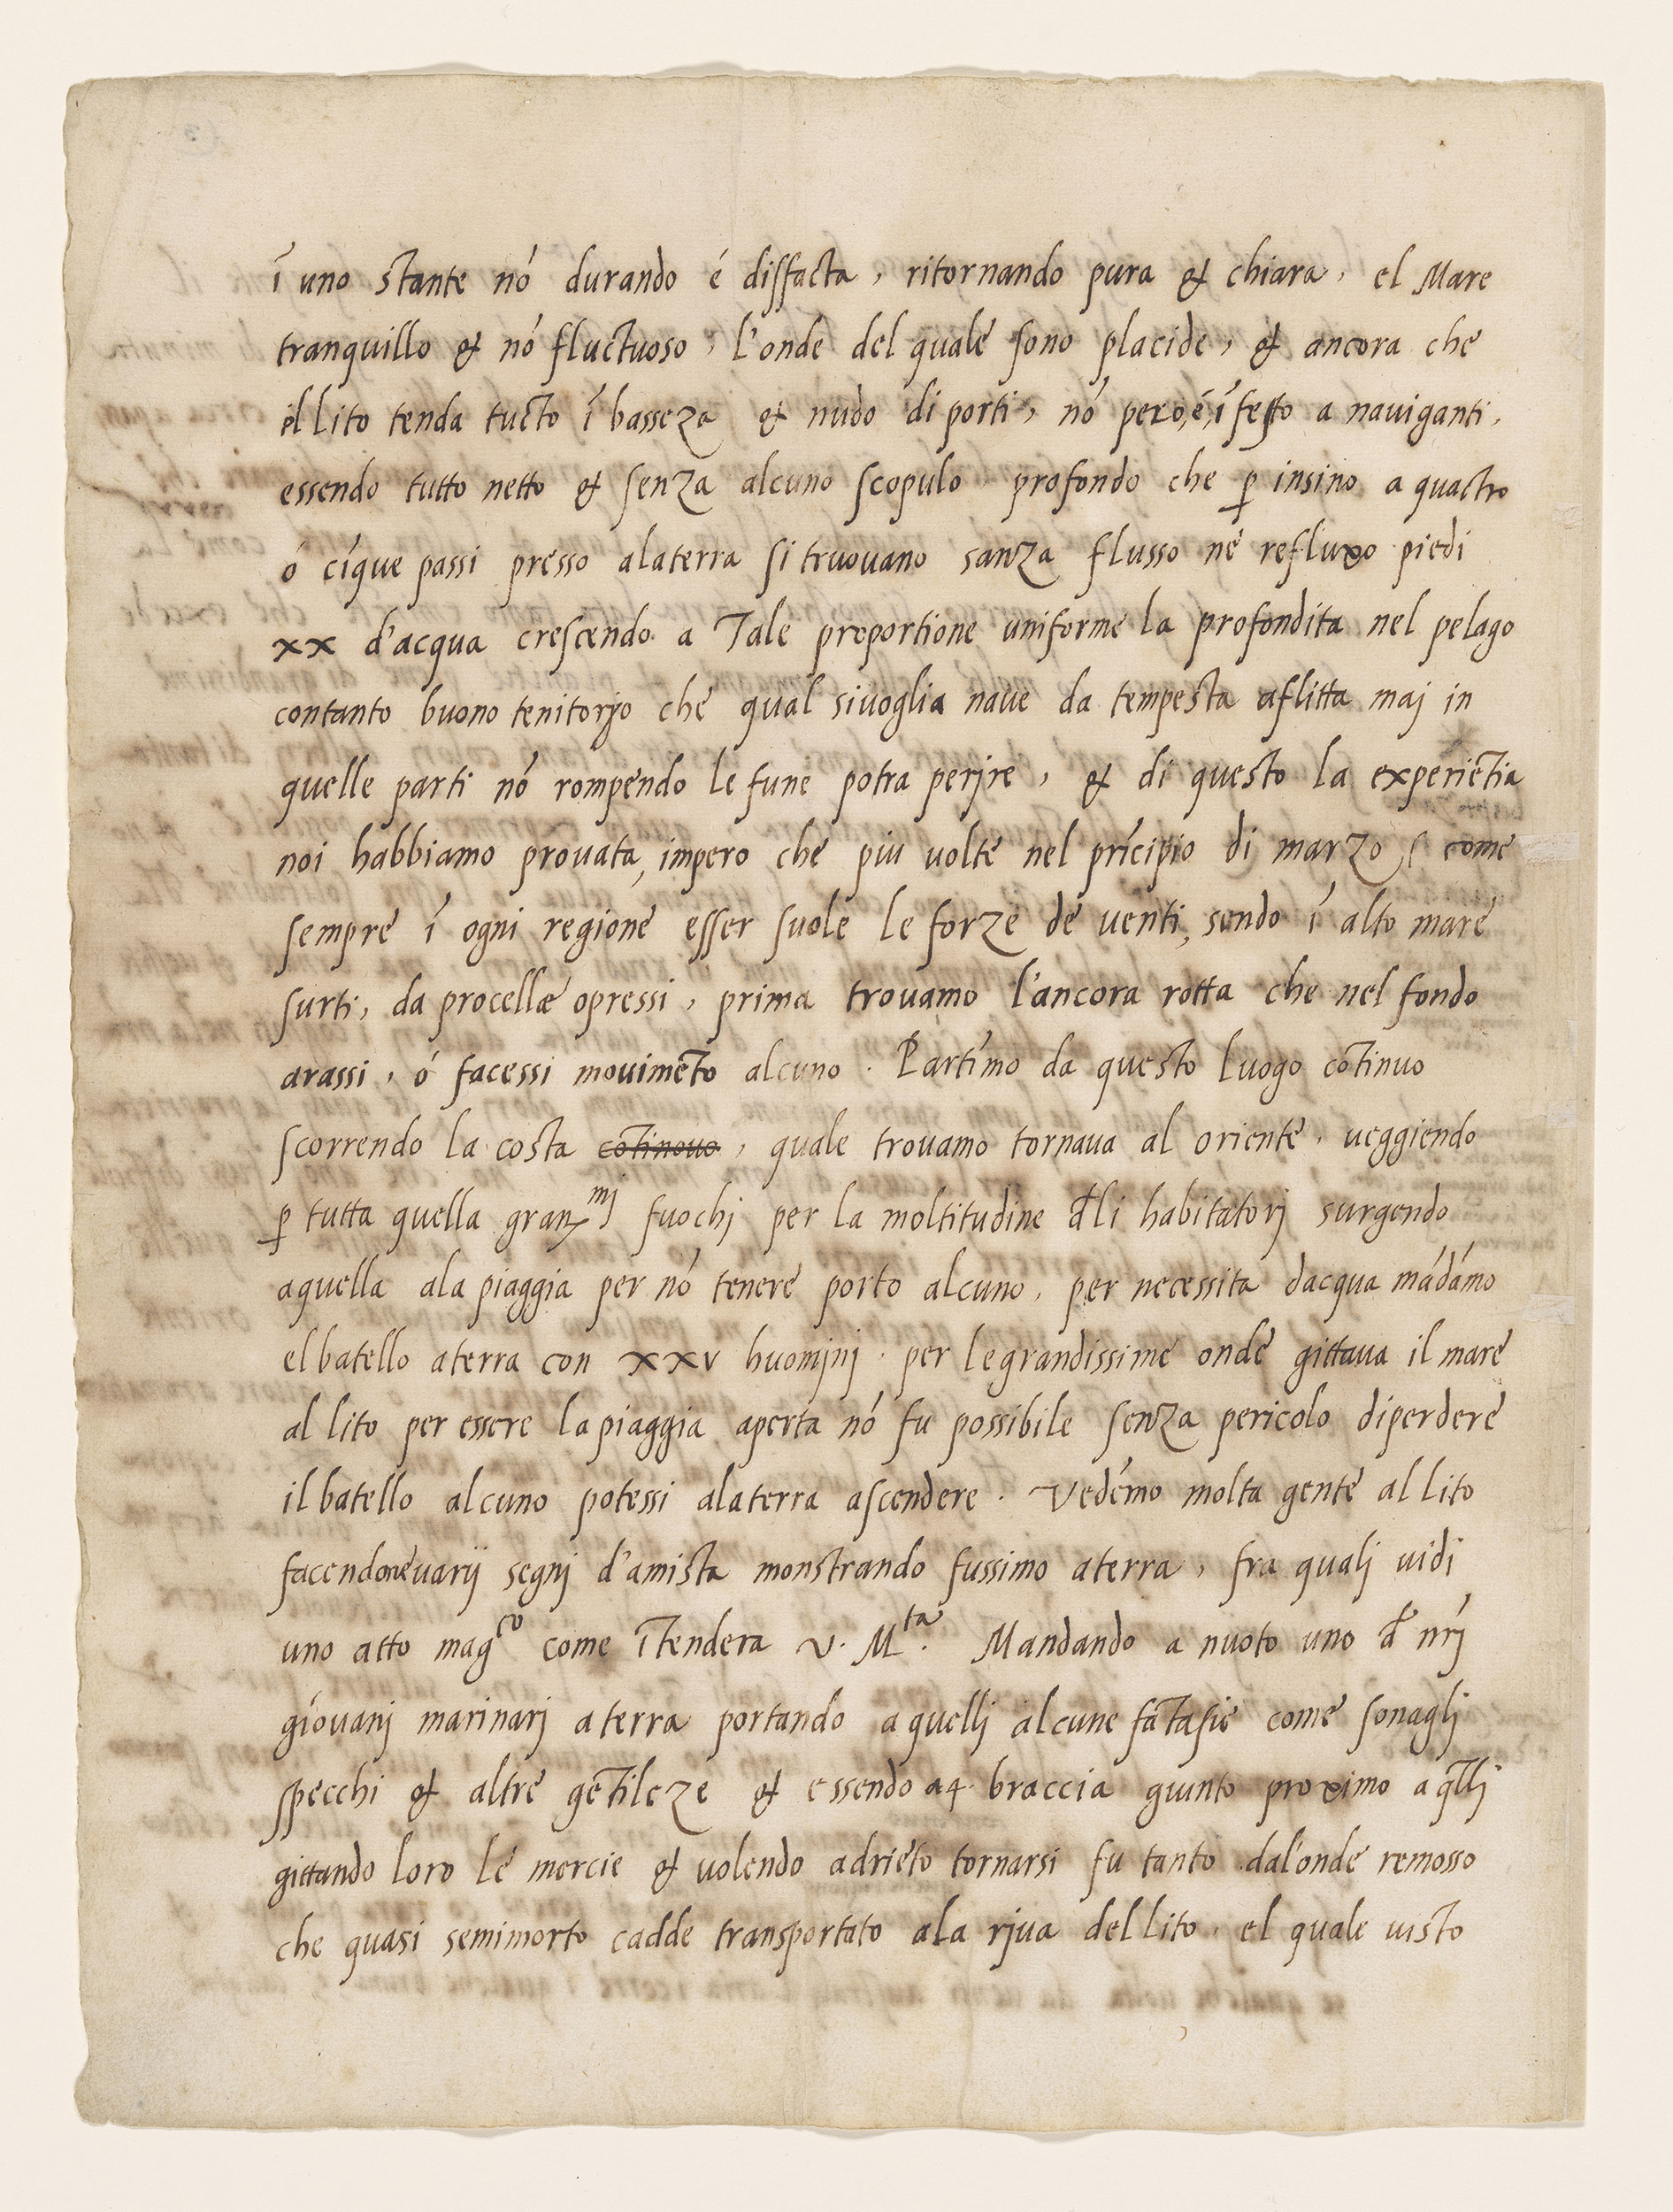 ī uno stante nó durando é disfacta, ritornando pura & chiara, el Mare
tranquillo & nó fluctuoso, l'onde del quale sono placide, & ancora che
il lito tenda tucto ī basseza & nudo di porti, nó pero, é, īfesto a naviganti,
essendo tutto netto & senza alcuno scopulo profondo che ꝑ insino a quactro
ó cīque passi presso alaterra si truovano sanza flusso né refluxo piedi
xx d'acqua crescendo a Tale proportione uniforme la profondita nel pelago
contanto buono tenitorjo che qual sivoglia nave da tempesta aflitta maj in
quelle parti nó rompendo le fune potra perjre, & di questo la experiētia
noi habbiamo provata, impero che piu volte nel prīcipio di marzo ( come
sempre ī ogni regione esser suole le forze de venti, sendo ī alto mare
surti, da procellæ opressi, prima trovamo l'ancora rotta che nel fondo
arassi, ó facessi movimēto alcuno. Partīmo da questo luogo cōtinuo
scorrendo la costa cōtinovo, quale trovamo tornava al oriente, veggiendo
ꝑ tutta quella gran^mj fuochj per la moltitudine đli habitatorj surgendo
aquella ala piaggia per nó tenere porto alcuno, per necessita dacqua mádámo
el batello aterra con xxv huomjnj. per legrandissime onde gittava il mare
al lito per essere lapiaggia aperta nó fu possibile senza pericolo diperdere
il batello alcuno potessi alaterra ascendere. Vedémo molta gente al lito
facendone varij segnj d'amista monstrando fussimo aterra, fra qualj vidi
uno atto mag^co come ītendera V. M^ta. Mandando a nuoto uno đ nr̃j
gíovanj marinarj aterra portando aquellj alcune fātasie come sonaglj
specchi & altre gētileze & essendo a 4. braccia giunto proximo a q̄lli
gittando loro le mercie & volendo adrieto tornarsi fu tanto dal'onde remosso
che quasi semimorto cadde transportato ala rjva del lito, el quale visto